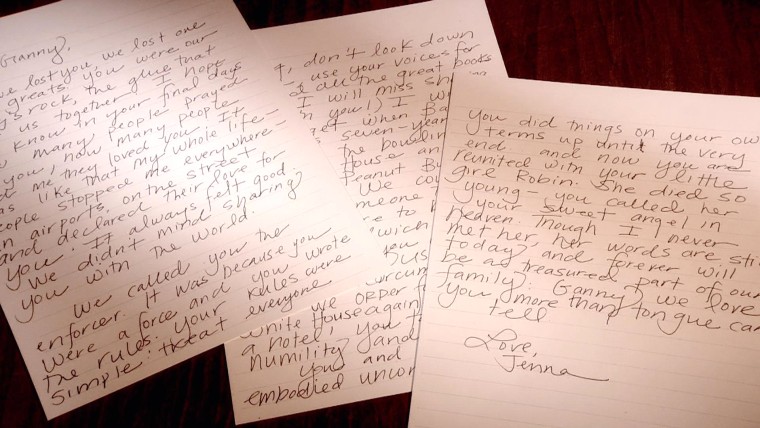 Ganny,
we lost you, we lost one
greats. You were our
's rock, the glue that
us together. I hope
know in your final days
many people prayed
you, how many people
me they loved you. It
as like that my whole life-
people stopped me everywhere-
in airports, on the street
and declared their love for
you. It always felt good.
We didn't mind sharing
you with the world.
We called you the
enforcer. It was because you
were a force and you wrote
the rules. Your rules were
simple: treat everyone
, don't look down
use your voices for
all the great books
I will miss
n you!) I
when
seven-year
the bowling
House
Peanut
We
meone
to
you
White House again
a hotel, you
humility and
you and
embodied
you did things on your ow
terms up until the very
end. and now you are
reunited with your little
girl Robin. She died so
young- you called her
your sweet angel in
heaven. Though I never
met her, her words are sti
today and forever will
be a treasured part of our
family: Ganny, we love
you more than tongue can
tell
Love,
Jenna